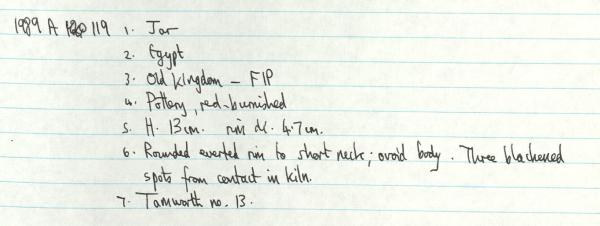 1989 A 119 1. Jar
2. Egypt
3. Old Kingdom - FIP
4. Pottery, red-burnished
5. H. 13cm. rim di. 4.7cm.
6. Rounded everted rim to short neck; ovoid body. Three blackened
spots from contact in kiln.
7. Tamworth no. 13.